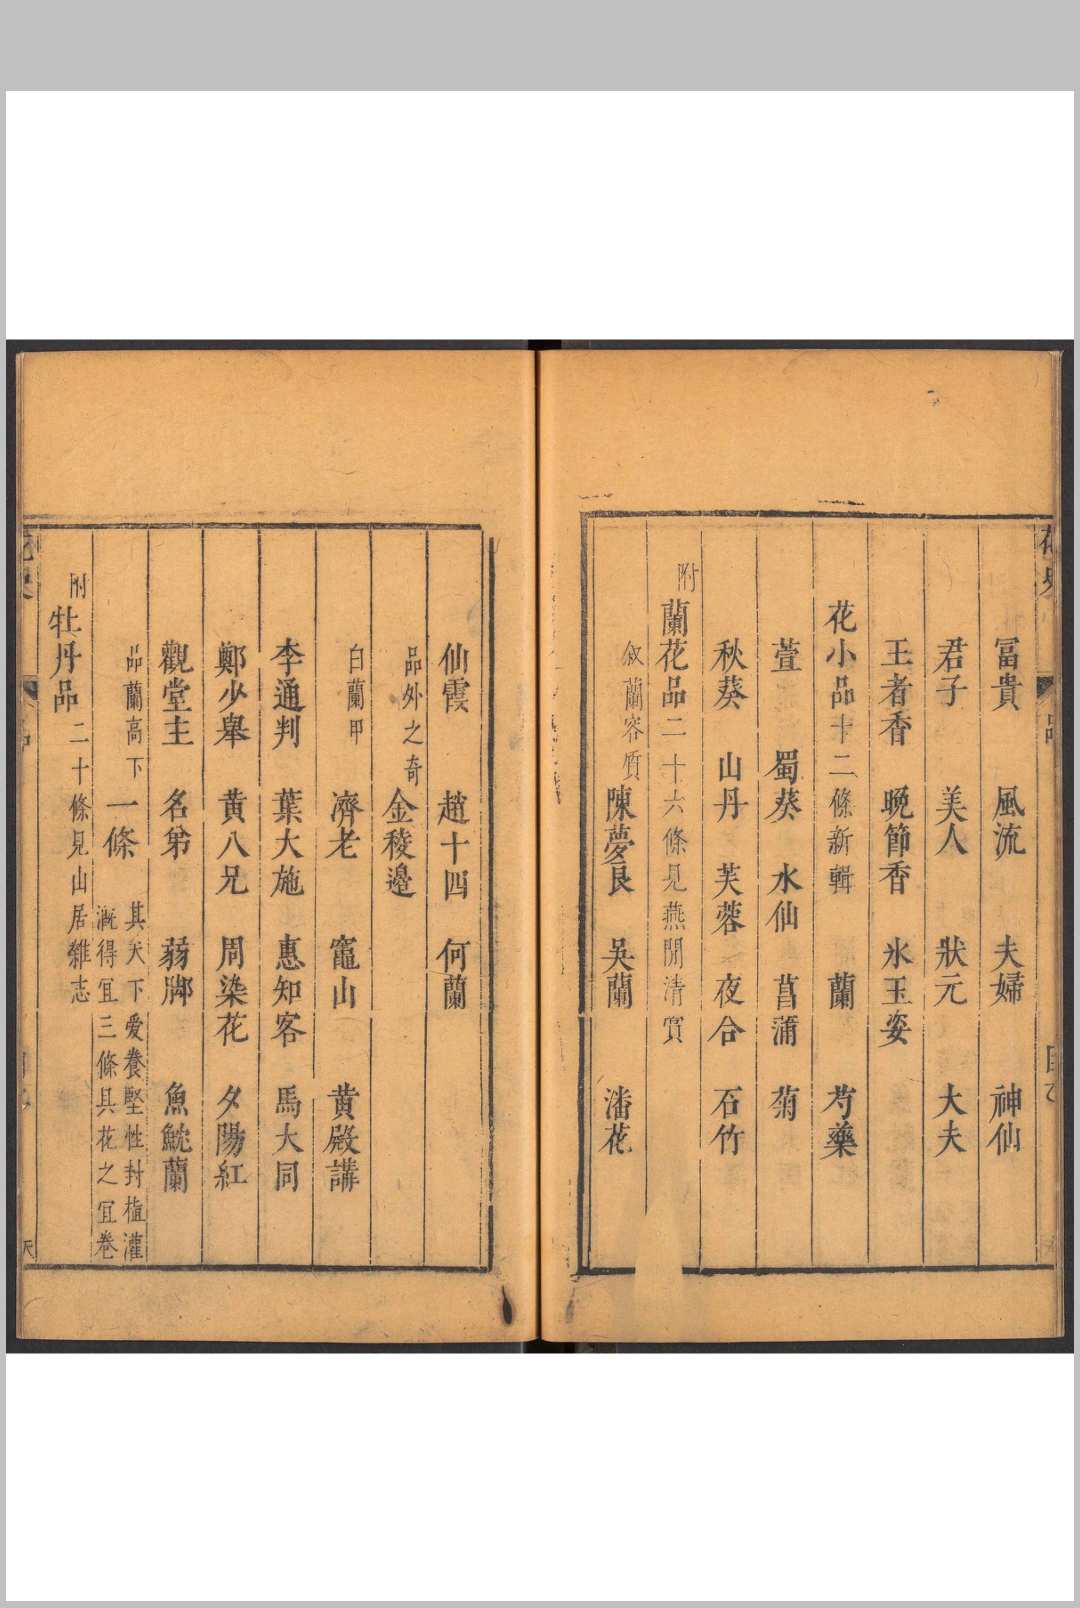 冨貴　風流　夫婦　神仙
君子　美人　狀元　大夫
王者香　晚節香　氷玉姿
花小品十二條新輯　蘭　芍藥
萱　蜀葵　水仙　菖蒲　菊
秋葵　山丹　芙蓉　夜合　石竹
附蘭花品二十六條見燕閒清賞
敘蘭容質　陳夢良　吳蘭　潘花
仙霞　趙十四　何蘭
品外之奇　金稜邊
白蘭甲　濟老　竈山　黃殿講
李通判　葉大施　惠知客　馬大同
鄭少舉　黃八兄　周染花　夕陽紅
觀堂主　名第　蒻脚　魚魫蘭
品蘭高下　一條　其天下愛養堅性封植灌
漑得宜三條具花之宜卷
附牡丹品二十條見山居雜志